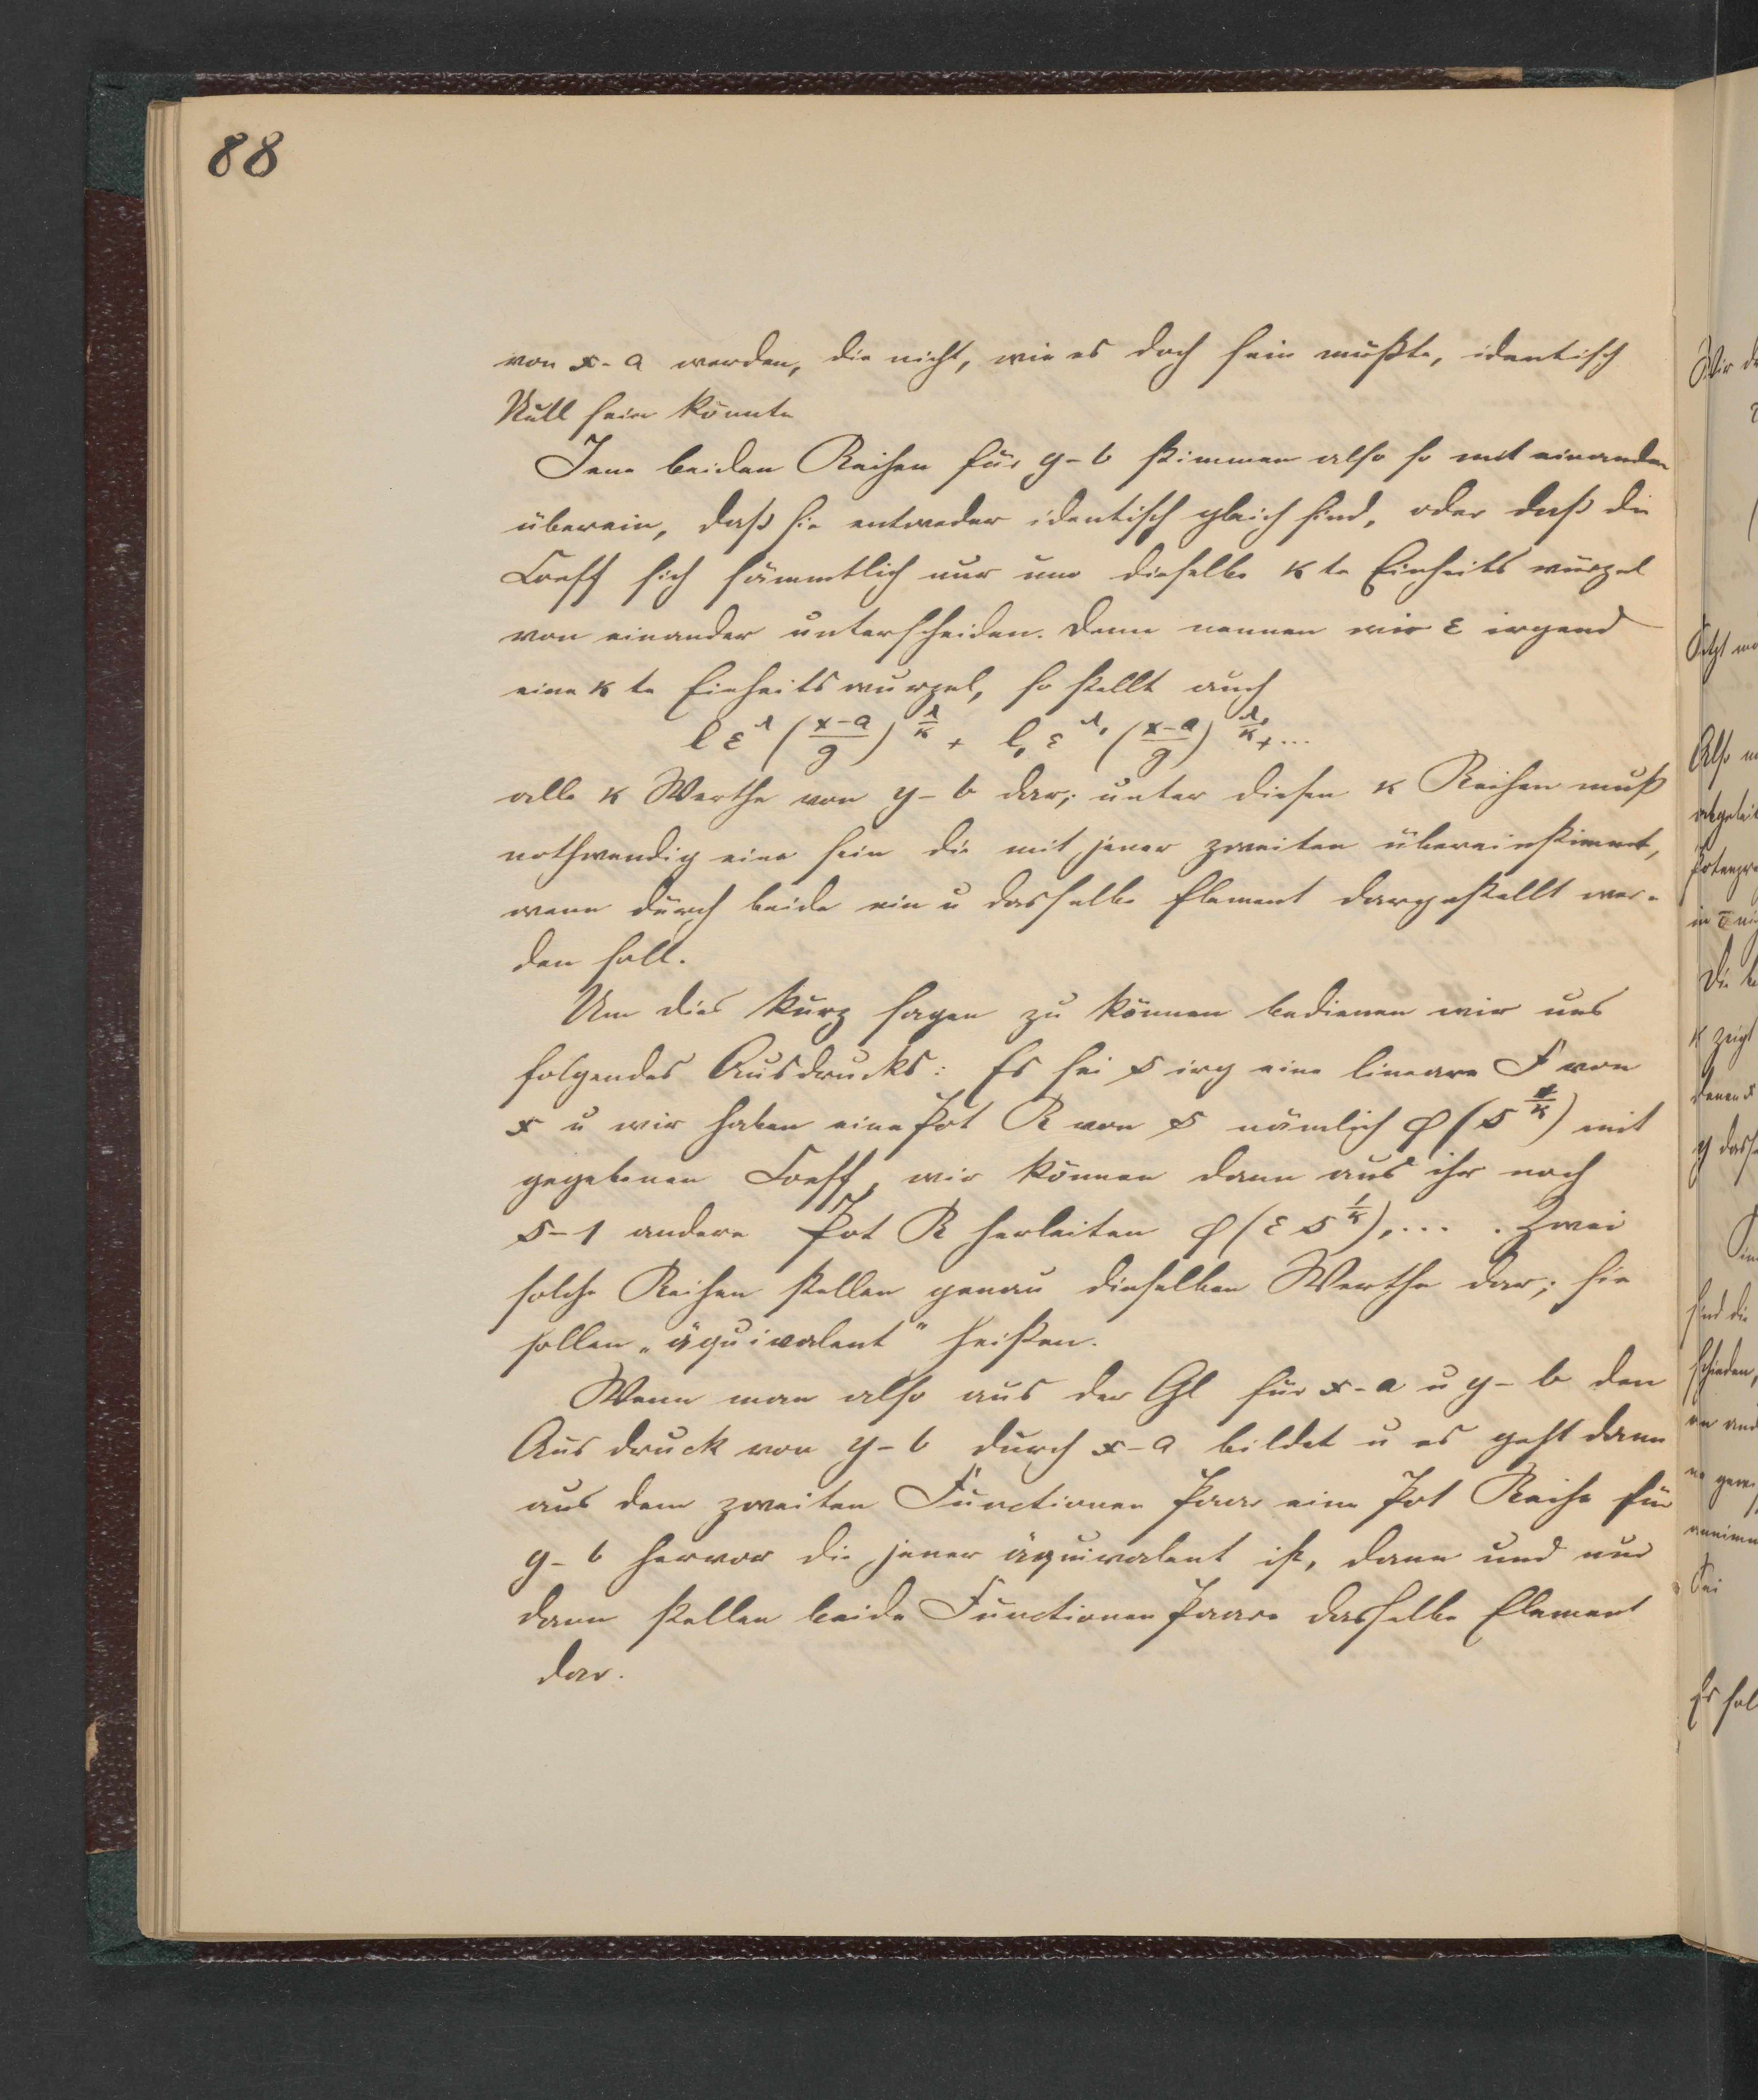 88
von x-a werden, die nicht, wie es doch sein müßte, identisch
Null sein könnte
Jene beiden Reihen für y-b stimmen also so mit einander
überein, daß sie entweder identisch gleich sind, oder daß die
Coeff sich sämmtlich nur um dieselbe κ te Einheitswurzel
von einander unterscheiden. Denn nennen wir ε irgend
eine κ te Einheitswurzel, so stellt auch
l ε^λ (x-a/g)^{λ/κ} + l, ε^{λ,} (x-a/g)^{λ,/κ} + ...
alle κ Werthe von y-b dar; unter diesen κ Reihen muß
nothwendig eine sein die mit jener zweiten übereinstimmt,
wenn durch beide ein u dasselbe Element dargestellt wer-
den soll.
Um dies kurz sagen zu können bedienen wir uns
folgendes Ausdrucks: Es sei s irg eine lineare F von
x u wir haben eine Pot R von s nämlich φ(s^{1/κ}) mit
gegebenen Coeff, wir können dann aus ihr noch
s-1 andere Pot R herleiten φ(ε s^{1/κ}),... . Zwei
solche Reihen stellen genau dieselben Werthe dar; sie
sollen „äquivalent" heißen.
Wenn man also aus der Gl für x-a u y-b den
Ausdruck von y-b durch x-a bildet u es geht dann
aus dem zweiten Functionen Paar eine Pot Reihe für
y-b hervor die jener äquivalent ist, dann und nur
dann stellen beide Functionen Paare dasselbe Element
dar.